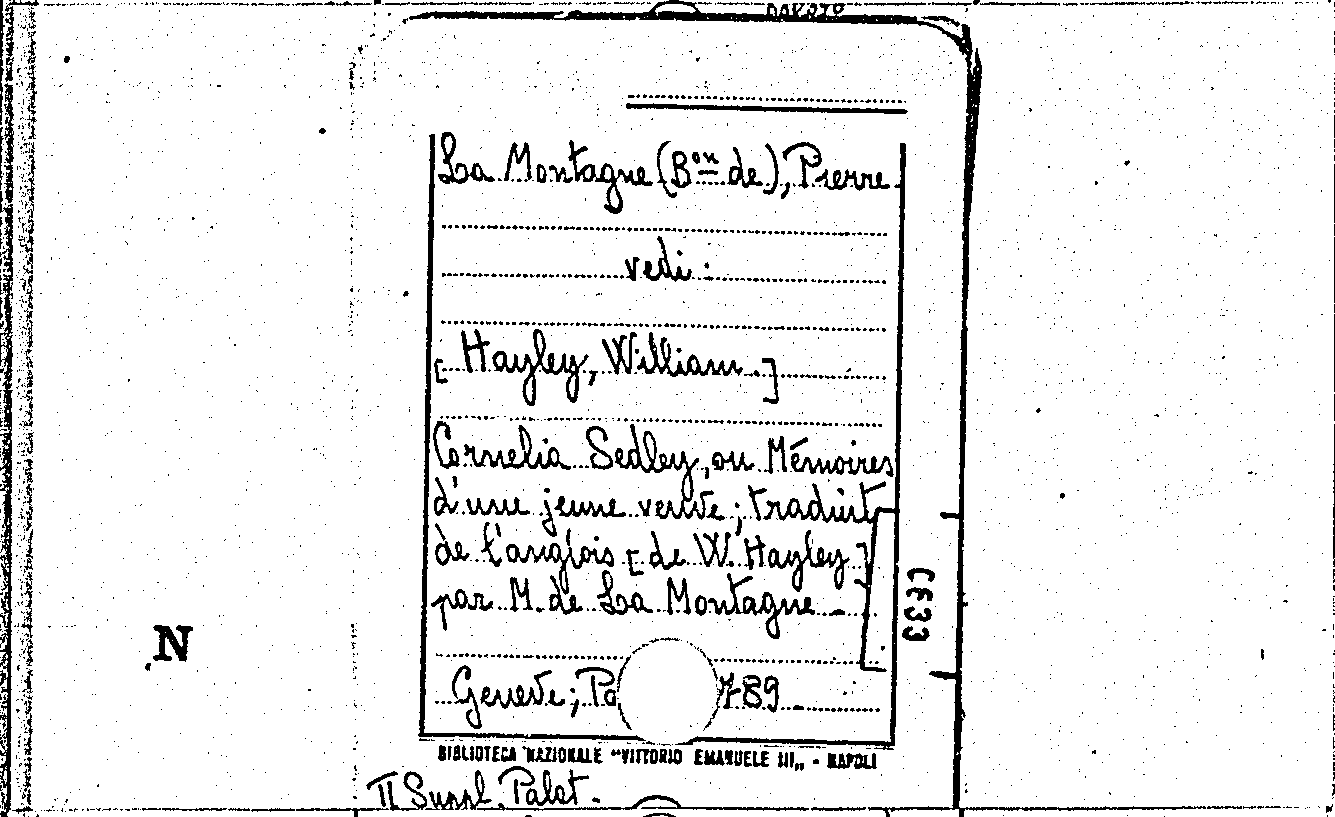 La Montagne (Bon de), Pierre
vedi:
[Hayley, William.]
Cornelia Sedley, ou Mémoires
d'une jeune veuve; traduit
de l'anglois [de W. Hayley]
par M. de La Montagne -
Geneve; Pa 789 -
BIBLIOTECA NAZIONALE "VITTORIO EMANUELE III„ - NAPOLI
II Suppl. Palat.
N